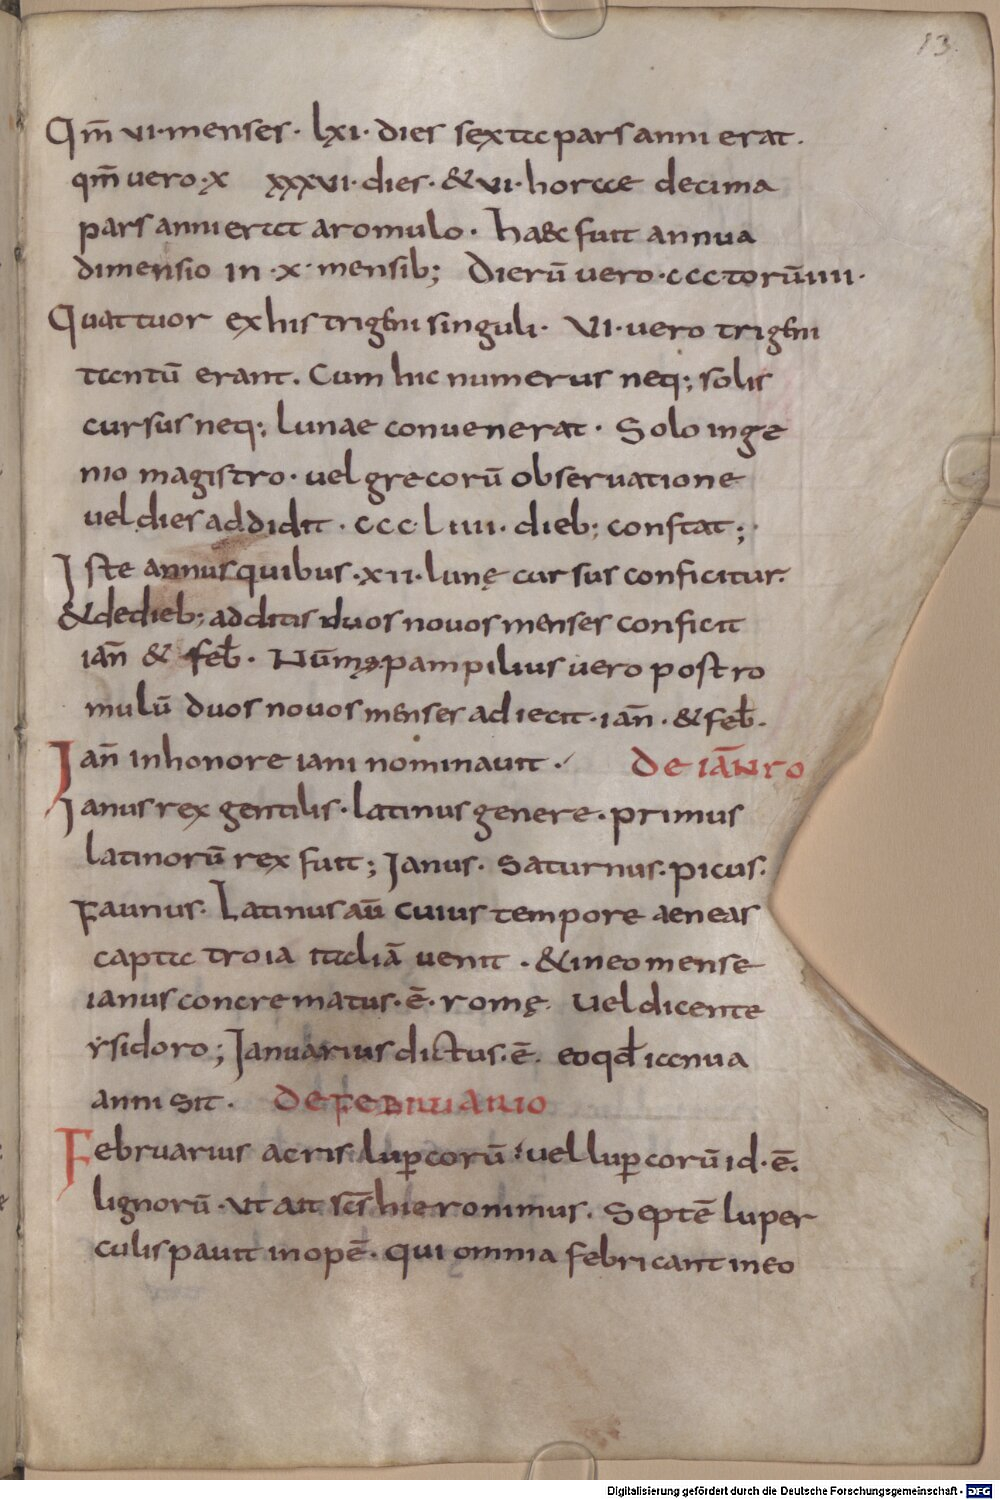 13
Qm̄ vi·menses· lxi· dies sexta pars anni erat·
qm̄ uero·x xxxvi·dies·&vi·horae decima
pars anni erat aromulo· haec fuit annua
dimensio in·x·mensib; dierū uero·ccctorūiiii·
Quattuor ex his trigeni singuli· vi·uero trigeni
tantū erant. Cum hic numerus neq; solis
cursus neq; lunae convenerat· Solo inge
nio magistro· uel grecorū observatione
uel dies addidit·ccc·liiii·dieb; constat;
Iste annus quibus·xii·lunę cursus conficitur·
&dedieb; additis duos novos menses conficit
iañ & feb̄· Nūmą·pampilius uero post ro
mulū duos novos menses adiecit·iañ·&feb̄·
Iañ inhonore iani nominauit· De iāNro
Ianus rex gentilis·latinus genere·primus
latinorū rex fuit; Ianus· Saturnus· picus·
Faunus· Latinus aū cuius tempore aeneas
capta troia italiā uenit·&ineo mense
ianus concrematus·ē·romę· uel dicente
ysidoro; Ianuarius dictus·ē· eo qd̄ ianua
anni sit· DE FEBRUARIO
Februarius acris luꝑcorū uel luꝑcorū id·ē·
lignorū·ut ait scs̄ hieronimus· Septē luper
culis pauit inopē·qui omnia febricant in eo
Digitalisierung gefördert durch die Deutsche Forschungsgemeinschaft - DFG